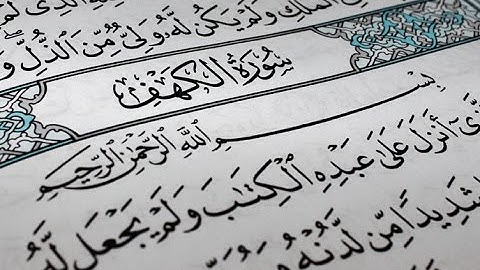 ٱلْمُلْكِ وَلَمْ يَكُن لَّهُۥ وَلِىٌّ مِّنَ ٱلذُّلِّ
سُورَةُ ٱلْكَهْفِ
بِسْمِ ٱللَّهِ ٱلرَّحْمَٰنِ ٱلرَّحِيمِ
أَنزَلَ عَلَىٰ عَبْدِهِ ٱلْكِتَٰبَ وَلَمْ يَجْعَل لَّهُۥ
شَدِيدًا مِّن لَّدُنْهُ وَ